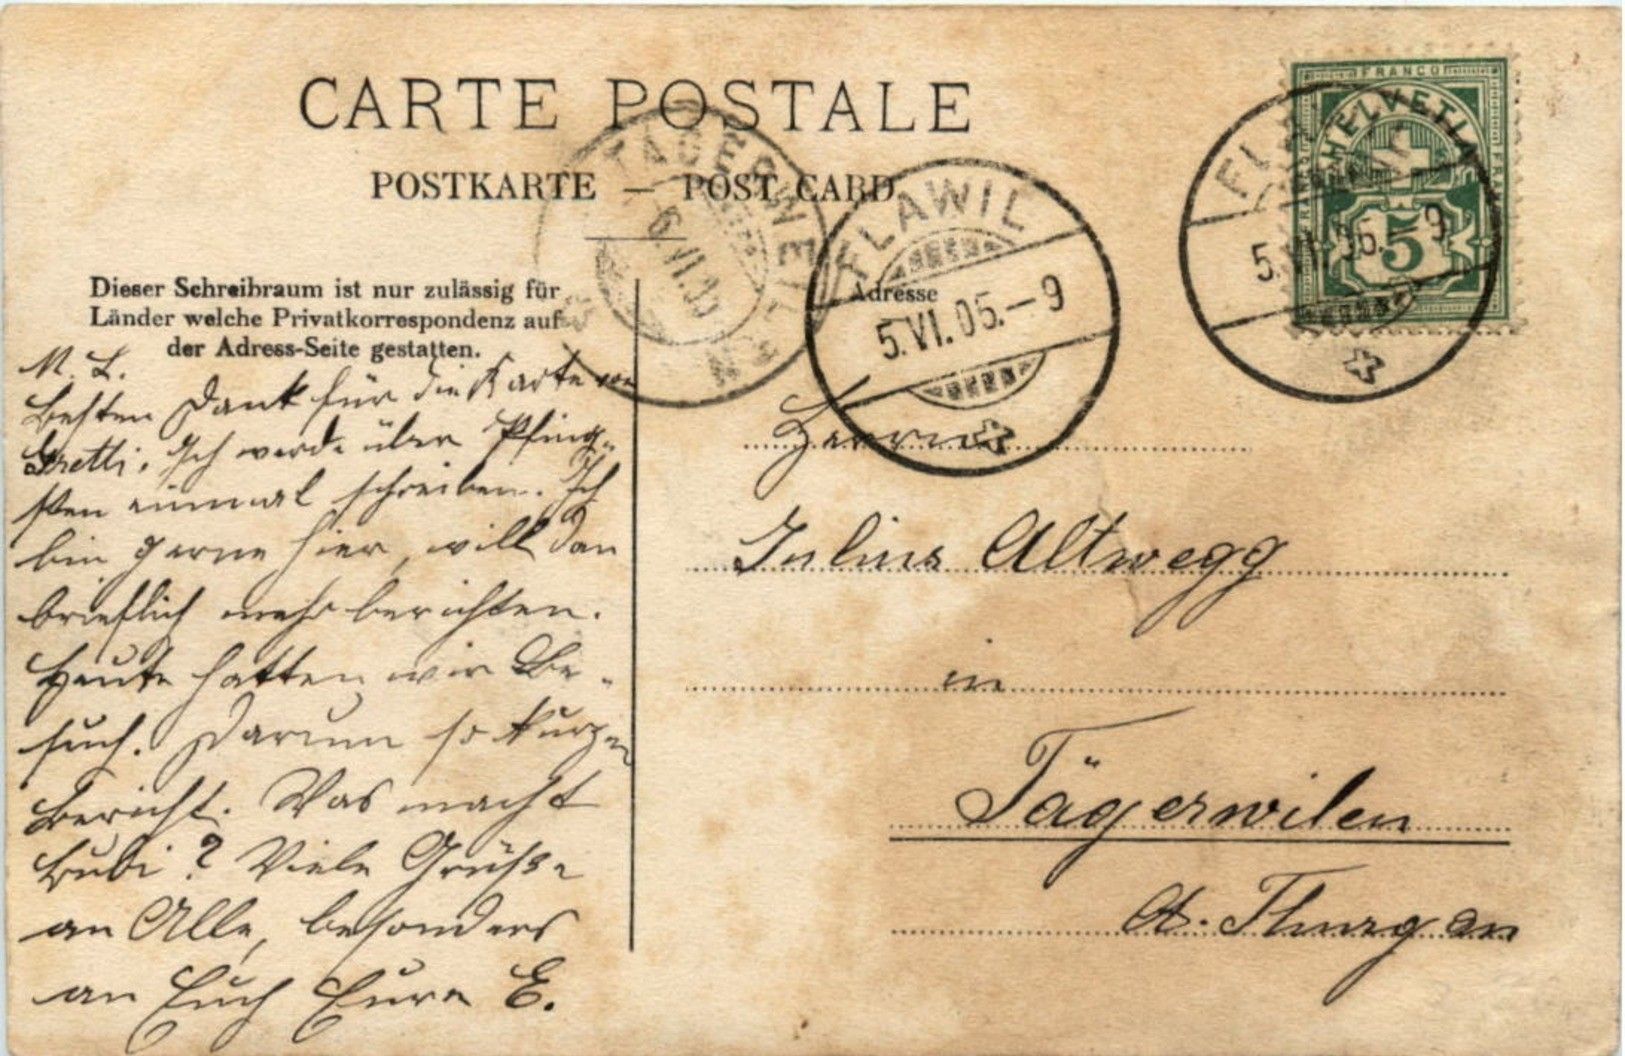 CARTE POSTALE
POSTKARTE — POST CARD
FRANCO
HELVETIA
5
FLAWIL
5.VI.05.-9
TÄGERWILEN
6.VI.05
Dieser Schreibraum ist nur zulässig für
Länder welche Privatkorrespondenz auf
der Adress-Seite gestatten.
M. L.
Besten Dank für die Karte von
Gretti. Ich werde über Pfing-
sten einmal schreiben. Ich
bin gerne hier, will dan
brieflich mehr berichten.
Heute hatten wir Be-
such. Darum so kurzen
Bericht. Was macht
Bubi? Viele Grüße
an Alle, besonders
an Euch Eure E.
Adresse
Herrn
Julius Altwegg
in
Tägerwilen
Kt. Thurgau